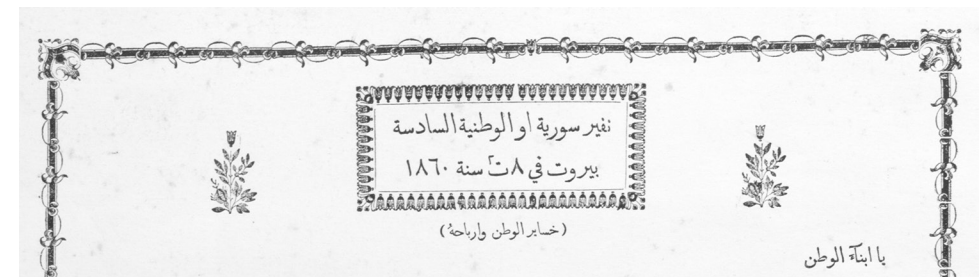 نفير سورية او الوطنية السادسة
بيروت في ٨ ت٢ سنة ١٨٦٠
(خساير الوطن وارباحهُ)
يا ابنآء الوطن